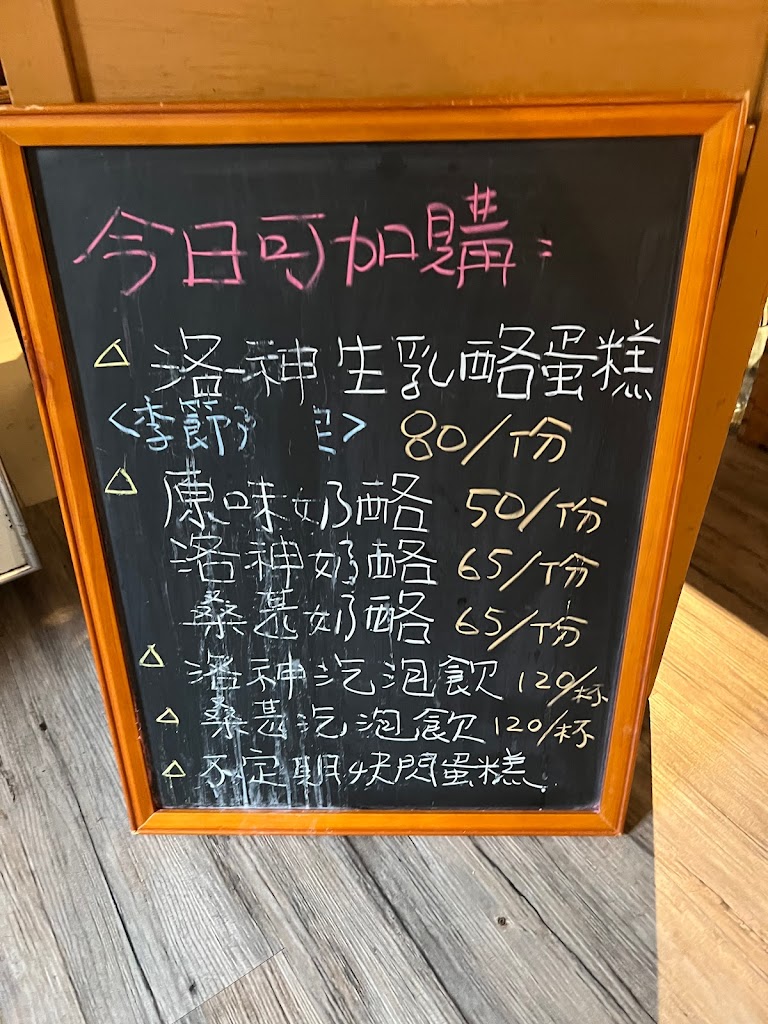 今日可加購：
△ 洛神生乳酪蛋糕
<季節 > 80/份
△ 原味奶酪 50/份
洛神奶酪 65/份
桑葚奶酪 65/份
△ 洛神汽泡飲 120/杯
△ 桑葚汽泡飲 120/杯
△ 不定期快閃蛋糕